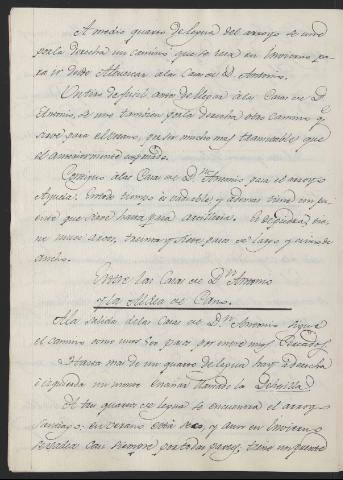 A medio quarto de legua del arroyo se une
por la derecha un camino que se usa en Invierno pa-
ra ir desde Albuecar a las Casas de D. Antonio.
Un tiro de fusil antes de llegar a las Casas de Dn.
Antonio, se une tambien por la derecha otro camino q
sirve para el verano, por ser mucho mas transitable que
el anteriormente explicado.
Contiguo a las Casas de D.n Antonio pasa el arroyo
Ayuela. En todo tiempo es vadeable y ademas tiene un puen
te que sirve hasta para artilleria. Es de piedra, tie
ne nueve arcos, treinta y siete pasos de largo y cinco de
ancho.
Entre las Casas de D.n Antonio
y la Aldea de Cano.
A la salida de las Casas de D.n Antonio sigue
el camino como unos 100 pasos por entre muy Cercados,
Hasta mas de un quarto de legua hay a derecha
é izquierda un monte encinar llamado la Dehesilla.
A tres quartos de legua se encuentra el arroyo
Santiago: en verano está seco, y aun en Invierno
se vadea casi siempre por todas partes; tiene un puente